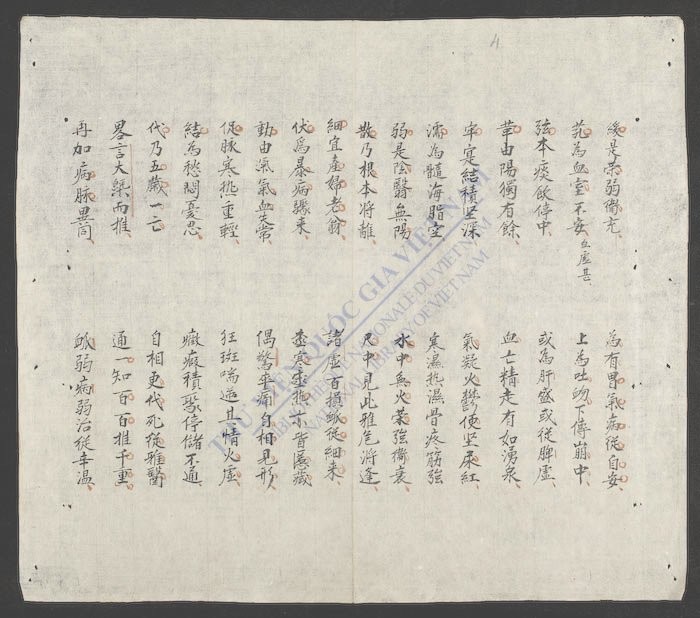 4
緩是荣弱衛充
為有胃氣病從自安
芤為血室不安血虛甚
上為吐衂下傳崩中
弦本痰飲停中
或為肝盛或從脾虛
革由陽獨有餘
血亡精走有如湧泉
牢寔結積堅深
氣凝火鬱便堅尿紅
濡為髓海脂空
寒濕熱濕骨疼筋強
弱是陰翳無陽
水中無火荣強衛衰
散乃根本將離
尺中見此雅危將逢
細宜產婦老翁
諸虛百損脉從細来
伏為暴病驟来
動由氣氣血失常
偶驚卒痛自相見形
促脉寒热重輕
狂斑喘逆且情火虛
結為愁悶憂忍
癥瘕積聚停儲不通
代乃五藏一亡
自相更代死徒雅醫
畧言大槩而推
通一知百百推千重
再加病脉異同
脉弱病弱治從辛溫
THƯ VIỆN QUỐC GIA VIỆT NAM
BIBLIOTHÈQUE NATIONALE DU VIETNAM
NATIONAL LIBRARY OF VIETNAM